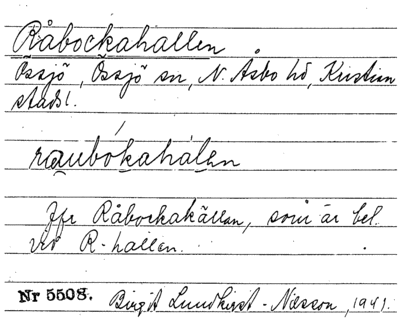 Råbockahallen
Össjö, Össjö sn, N. Åsbo hd, Kristian
stads l.
raubókahálen
Jfr Råbockakällan, som är bel.
vid R-hallen.
Nr 5508. Birgit Lundkvist-Nilsson, 1941.